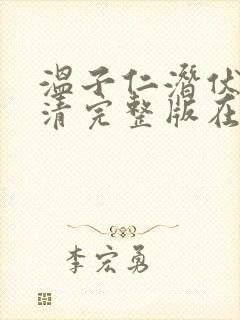 温子仁潜伏
清完整版在
李宏勇